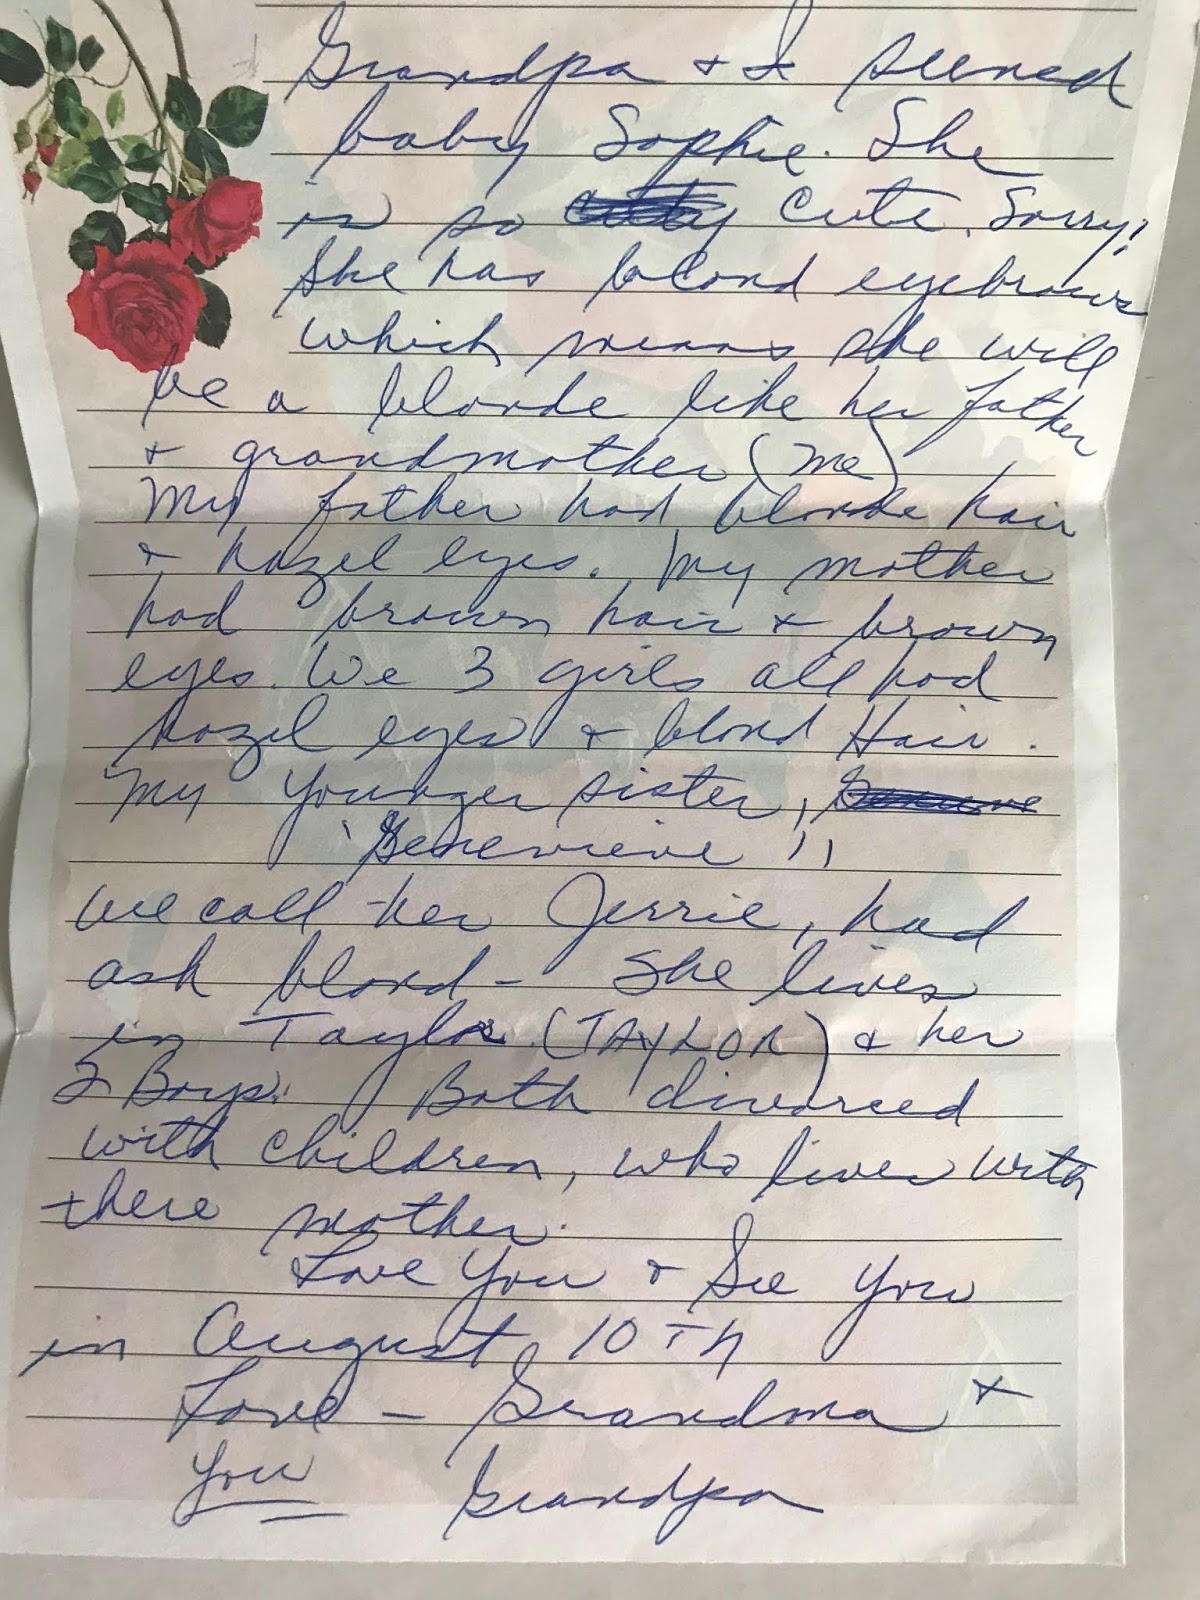 Grandpa + I seened
baby Sophie. She
is so cute. Sorry!
She has blond eyebrows
which means she will
be a blonde like her father
+ grandmother (me)
My father had blonde hair
+ hazel eyes. My mother
had brown hair + brown
eyes. We 3 girls all had
hazel eyes + blond Hair.
My younger sister,
"Genevieve"
we call her Jerrie, had
ash blond - She lives
in Taylor (TAYLOR) & her
2 Boys. Both divorced
with children, who lives with
there mother.
Love You + See You
in August 10TH
Love - Grandma +
You Grandpa